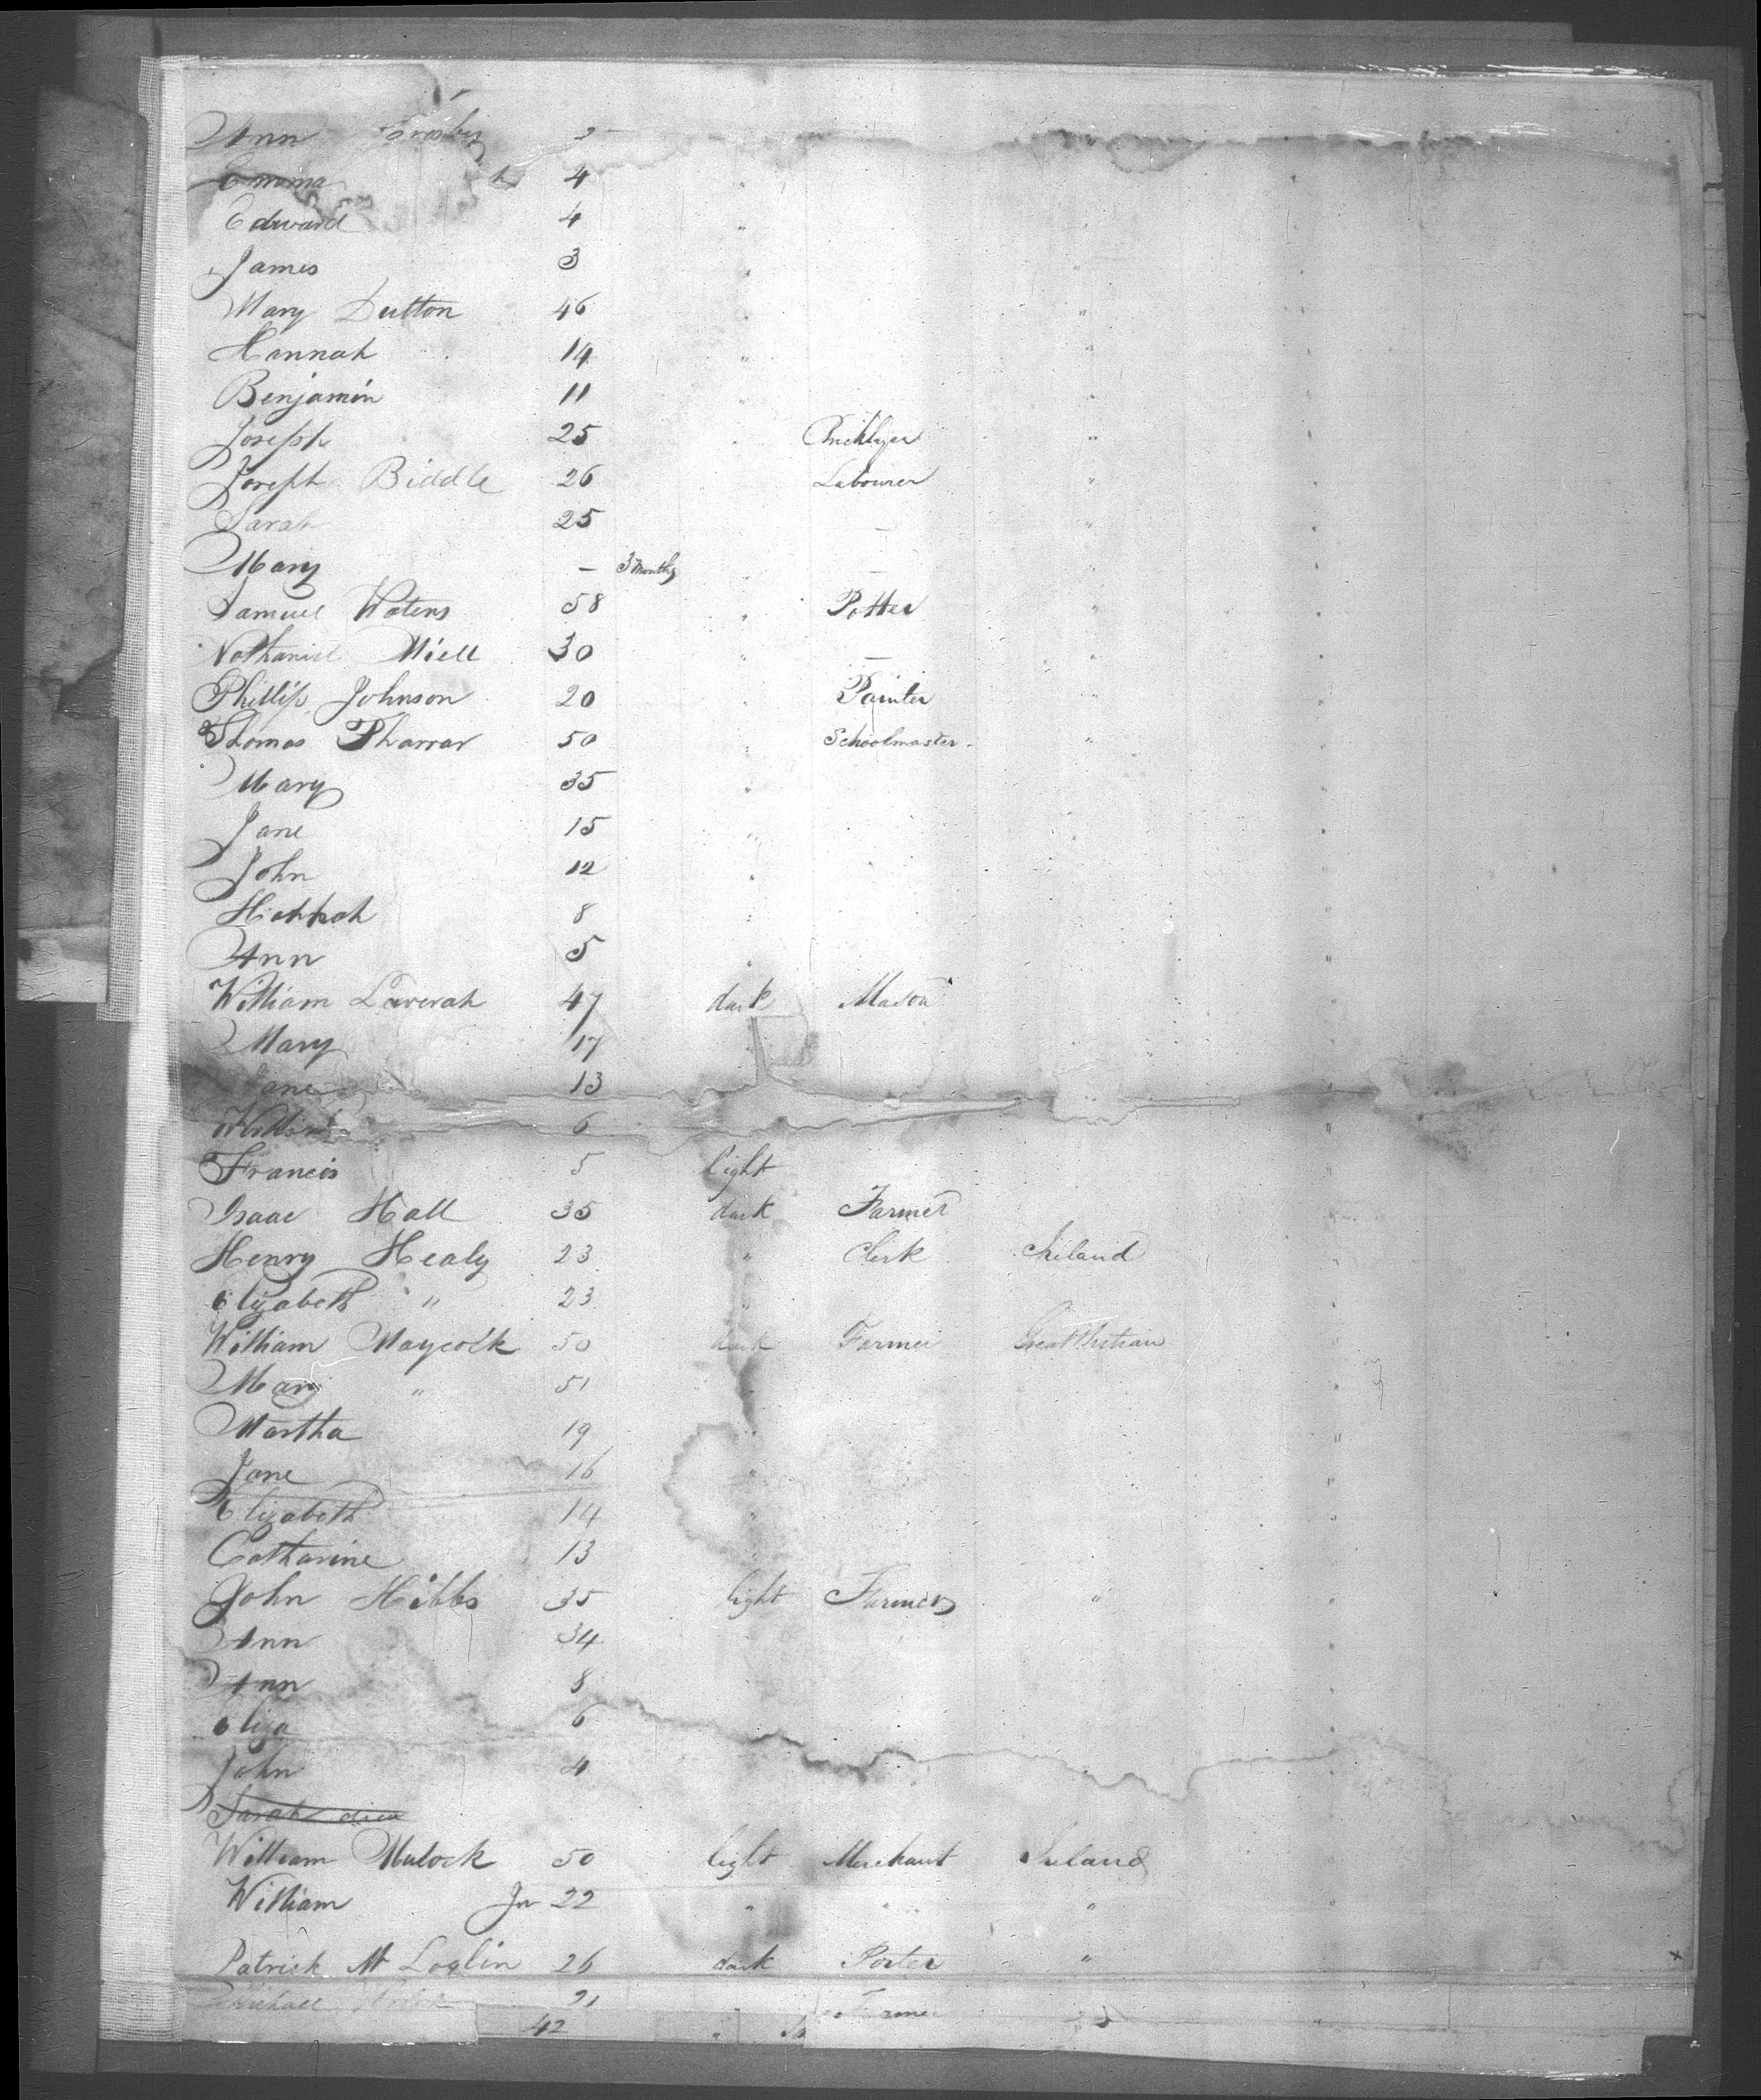 Ann Crosby
Emma 4 "
Edward 4 "
James 3 " "
Mary Dutton 46 " "
Hannah 14 " "
Benjamin 11 " "
Joseph 25 " Bricklyer "
Joseph Biddle 26 Labourer "
Sarah 25 — "
Mary — 3 Months " — "
Samuel Waters 58 " Potter "
Nathaniel Miell 30 " — "
Phillip Johnson 20 " Painter "
Thomas Pharrar 50 " Schoolmaster "
Mary 35 "
Jane 15 "
John 12 "
Hannah 8 "
Ann 5 "
William Laverah 47 dark Mason "
Mary 17
Jane 13 "
William 6 "
Francis 5 light
Isaac Hall 35 dark Farmer "
Henry Healy 23 " Clerk Ireland
Elizabeth " 23 "
William Maycock 50 dark Farmer Great Britian
Mary " 51 "
Martha 19 " "
Jane 16 " "
Elizabeth 14 " "
Catharine 13 "
John Hibbs 35 light Farmer " "
Ann 34 "
Ann 8 "
Eliza 6
John 4
Sarah died
William Mulock 50 light Merchant Ireland
William Jr 22 " " "
Patrick Mc Loglin 26 dark Porter "
Michael 21 Farmer
42 "